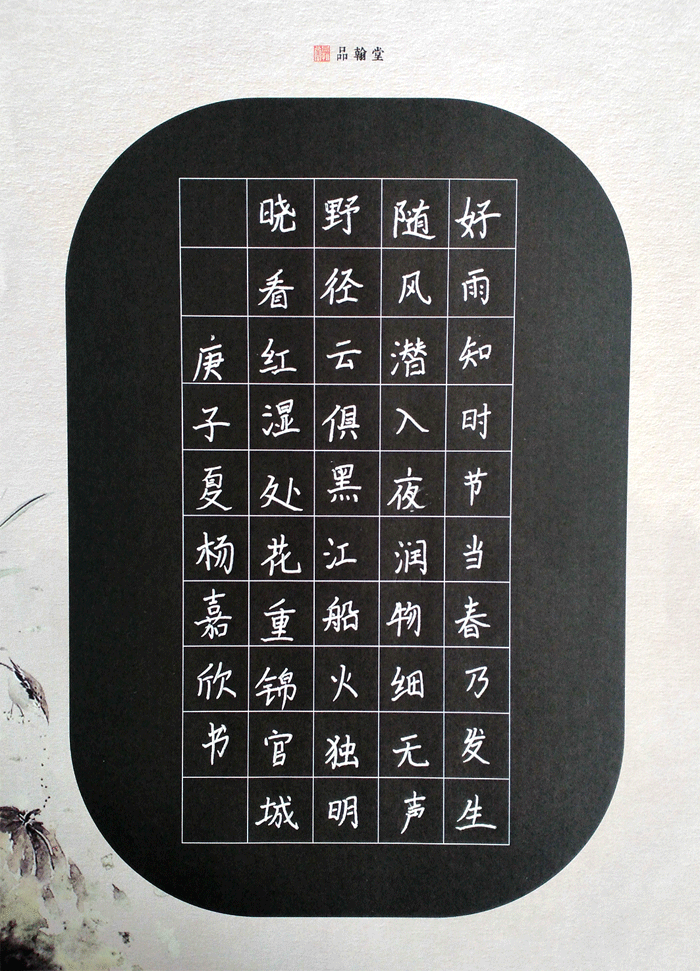 品翰堂
好雨知时节当春乃发生
随风潜入夜润物细无声
野径云俱黑江船火独明
晓看红湿处花重锦官城
庚子夏杨嘉欣书